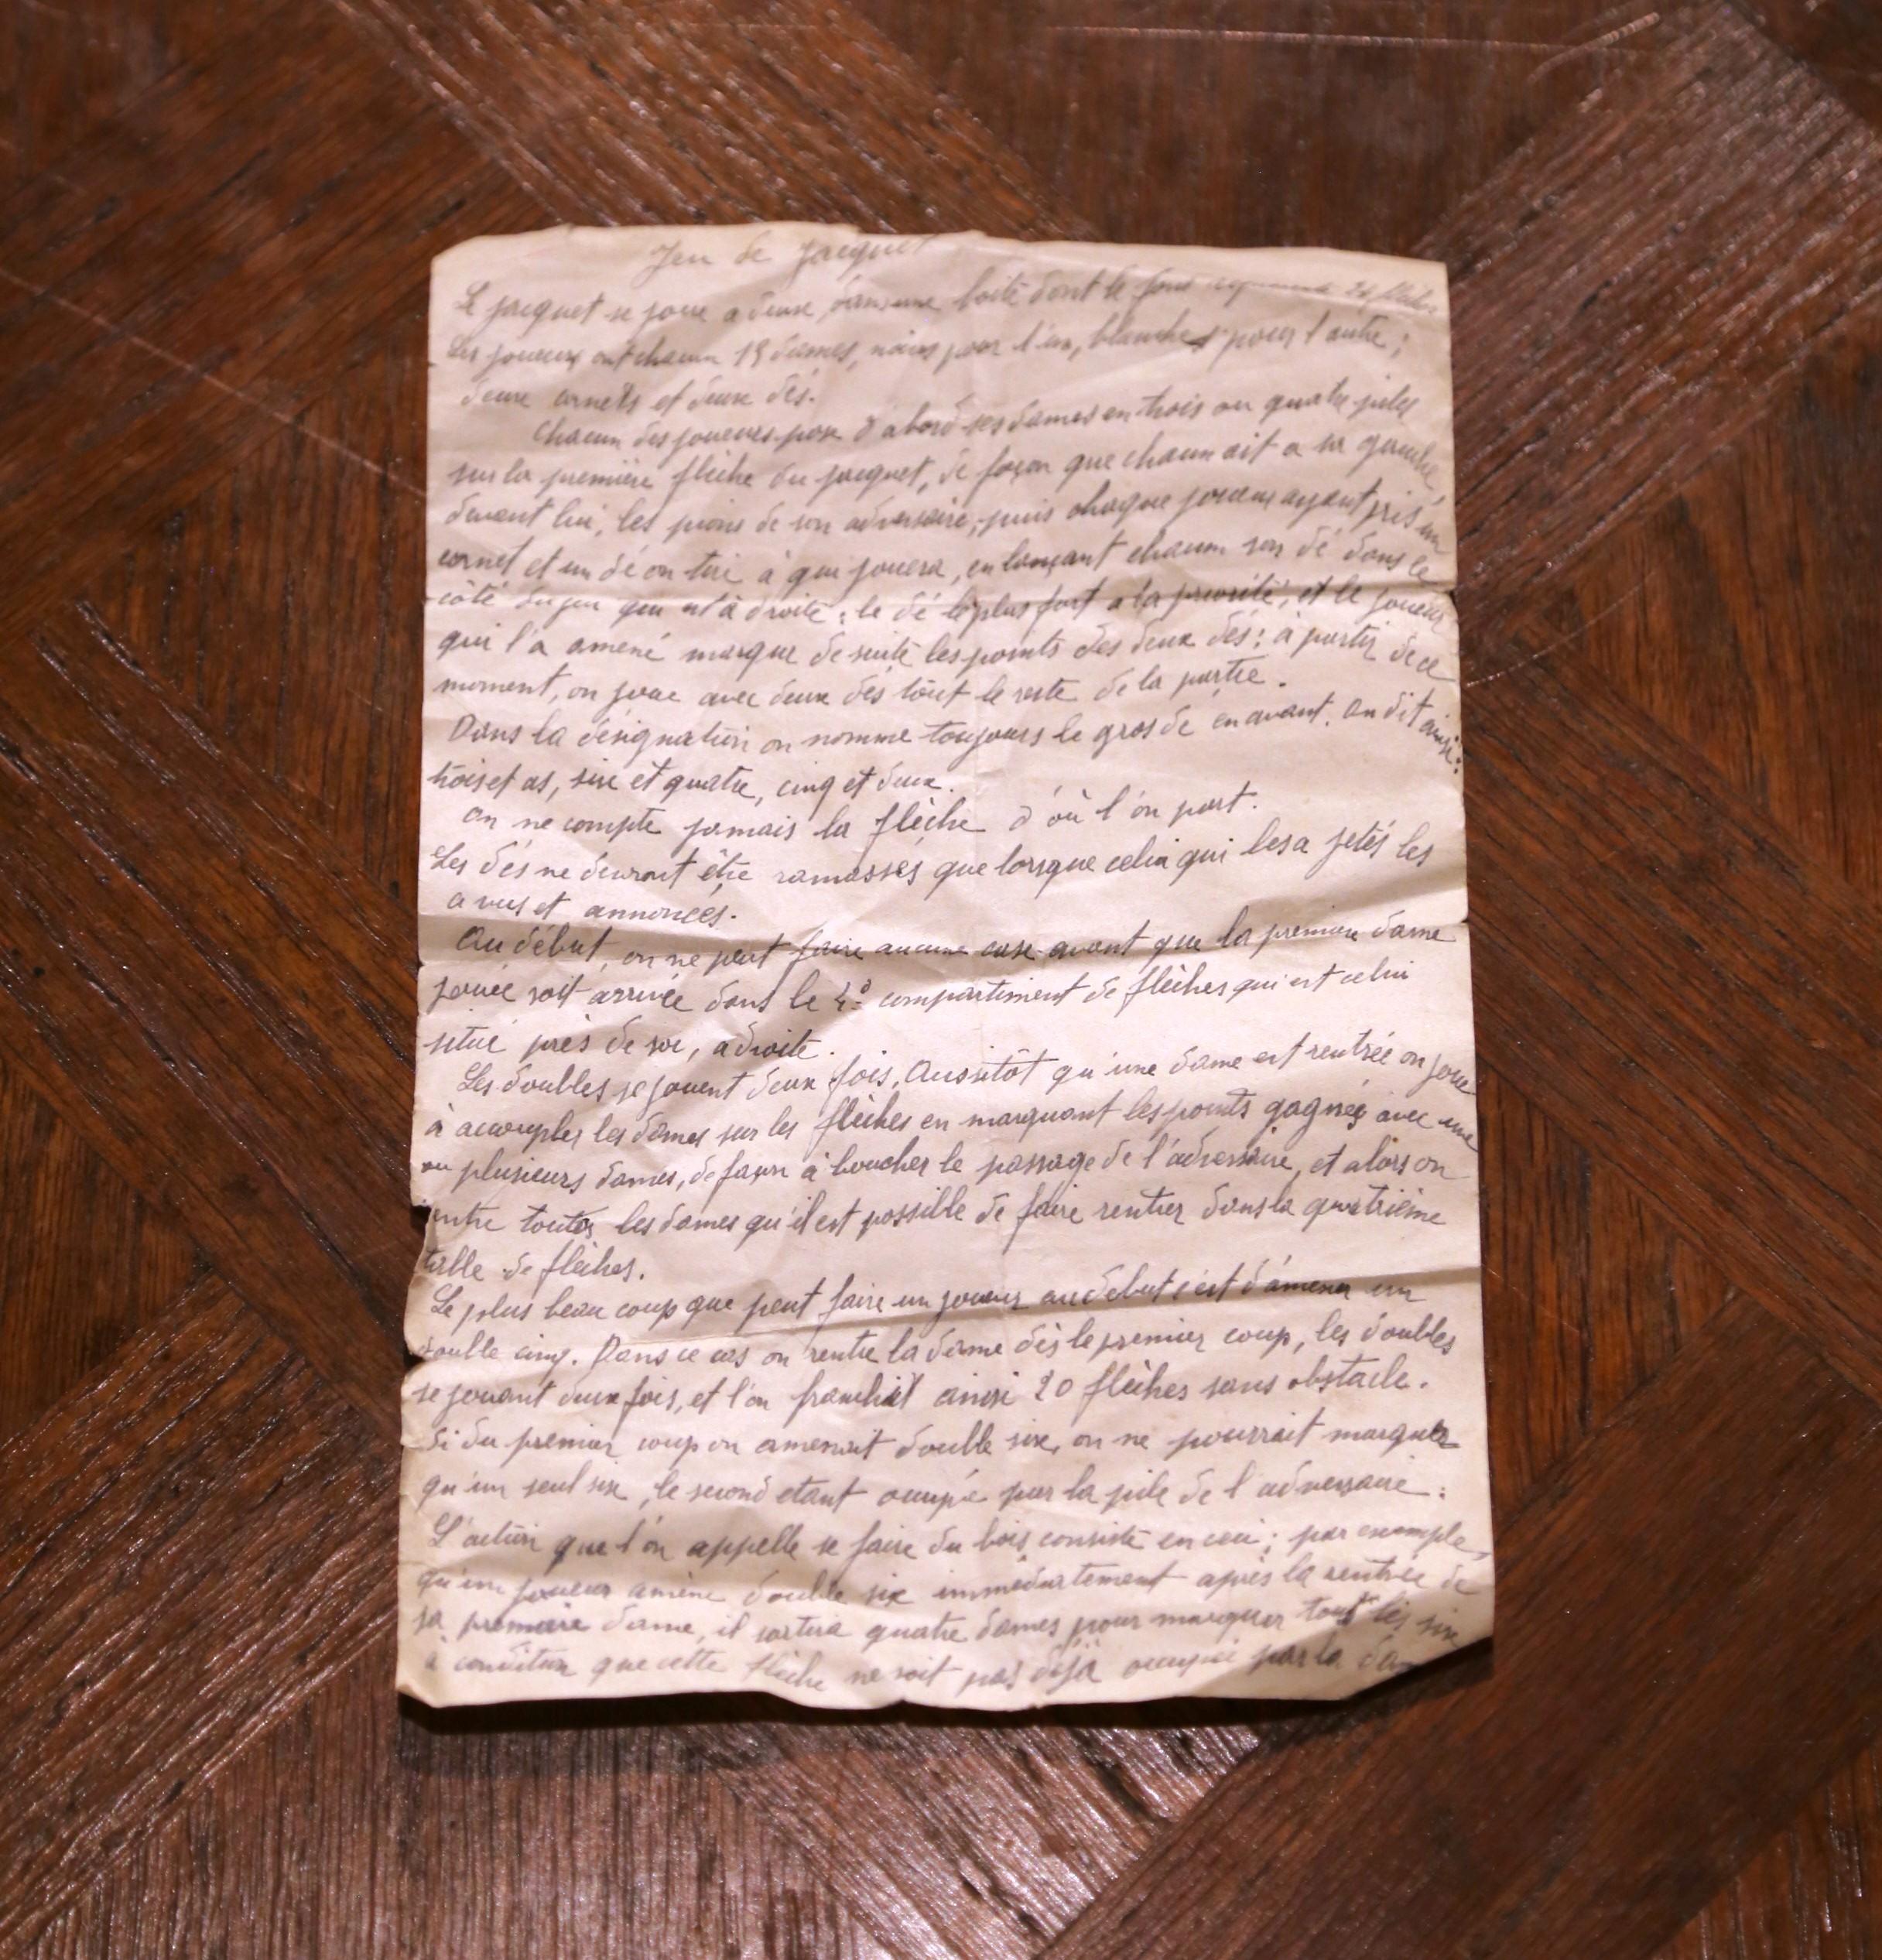 Jeu de Jacquet
Le jacquet se joue à deux, dans une boîte dont le fond 24 flèches
Les joueurs ont chacun 15 dames, noires pour l'un, blanches pour l'autre ;
deux cornets et deux dés.
Chacun des joueurs pose d'abord ses dames en trois ou quatre piles
sur la première flèche du jacquet, de façon que chacun ait a sa gauche,
devant lui, les pions de son adversaire ; puis chaque joueur ayant pris un
cornet et un dé on tire à qui jouera, en lançant chacun son dé dans le
côté du jeu qui est à droite ; le dé le plus fort a la priorité, et le joueur
qui l'a amené marque de suite les points des deux dés : à partir de ce
moment, on joue avec deux dés tout le reste de la partie.
Dans la désignation on nomme toujours le gros dé en avant. On dit ainsi :
trois et as, six et quatre, cinq et deux.
On ne compte jamais la flèche d'où l'on part.
Les dés ne devront être ramassés que lorsque celui qui les a jetés les
a vus et annoncés.
Au début, on ne peut faire aucune case avant que la première dame
jouée soit arrivée dans le 4e compartiment de flèches qui est celui
situé près de soi, à droite.
Les doubles se jouent deux fois. Aussitôt qu'une dame est rentrée on joue
à accoupler les dames sur les flèches en marquant les points gagnés avec une
ou plusieurs dames, de façon à boucher le passage de l'adversaire, et alors on
rentre toutes les dames qu'il est possible de faire rentrer dans la quatrième
table de flèches.
Le plus beau coup que peut faire un joueur au debut c'est d'amener un
double cinq. Dans ce cas on rentre la dame dès le premier coup, les doubles
se jouant deux fois, et l'on franchit ainsi 20 flèches sans obstacle.
Si du premier coup on amenait double six, on ne pourrait marquer
qu'un seul six, le second etant occupé par la pile de l'adversaire.
L'action que l'on appelle se faire du bois consiste en ceci ; par exemple,
qu'un joueur amène double six immédiatement après la rentrée de
sa première dame, il sortira quatre dames pour marquer tout les six
à condition que cette flèche ne soit pas déjà occupée par la